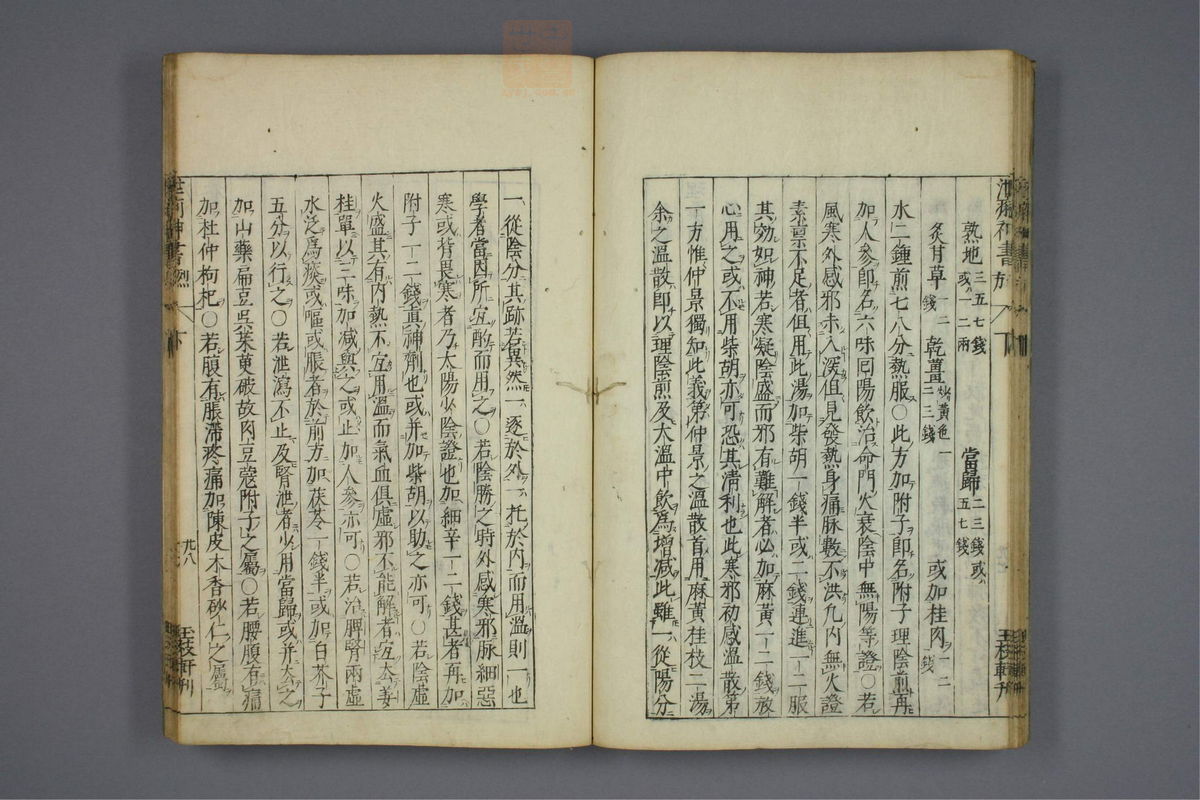 熟地三五七錢或一二兩 當歸二三錢或五七錢
炙甘草一二錢 乾薑炒黃色一二三錢 或加桂肉一二錢
水二鍾煎七八分熱服〇此方加附子即名附子理陰煎再
加人參即名六味回陽飲治命門火衰陰中無陽等證〇若
風寒外感邪未入深但見發熱身痛脉數不洪凢內無火證
素禀不足者但用此湯加柴胡一錢半或二錢連進一二服
其効如神若寒凝陰盛而邪有難解者必加麻黃一二錢放
心用之或不用柴胡亦可恐其清利也此寒邪初感溫散第
一方惟仲景獨知此義第仲景之溫散首用麻黃桂枝二湯
余之溫散即以理陰煎及大溫中飲爲增減此雖一從陽分
一從陰分其跡若異然一逐於外一托於內而用溫則一也
學者當因所宜酌而用之〇若陰勝之時外感寒邪脉細惡
寒或背畏寒者乃太陽少陰證也加細辛一二錢甚者再加
附子一二錢真神劑也或并加柴胡以助之亦可〇若陰虛
火盛其有內熱不宜用溫而氣血俱虛邪不能解者宜去姜
桂單以三味加減與之或止加人參亦可〇若治脾腎兩虛
水泛爲痰或嘔或脹者於前方加茯苓一錢半或加白芥子
五分以行之〇若泄瀉不止及腎泄者少用當歸或并去之
加山藥扁豆吳茱萸破故肉豆蔻附子之屬〇若腰腹有痛
加杜仲枸杞〇若腹有脹滯疼痛加陳皮木香砂仁之屬
玉枝軒刊
玉枝軒刊